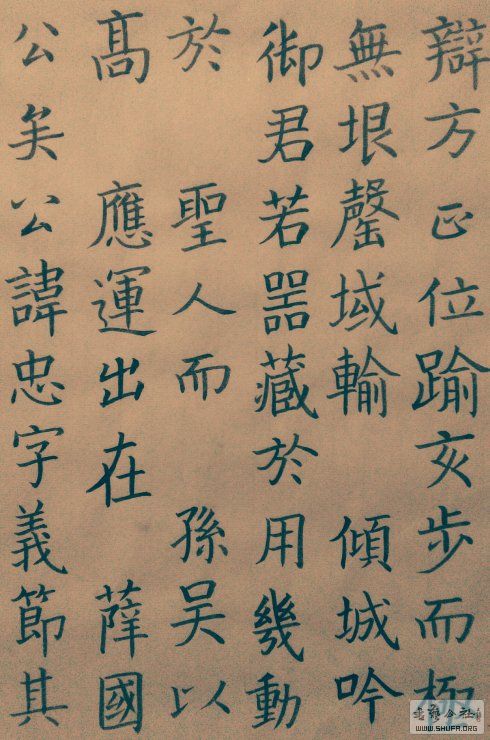 辯方正位踰亥步而極
無垠罄域輸 傾城吟
御君若器藏於用幾動
於 聖人而 孫吳以
高 應運出在 薛國
公矣公諱忠字義節其
WWW.SHUFA.ORG